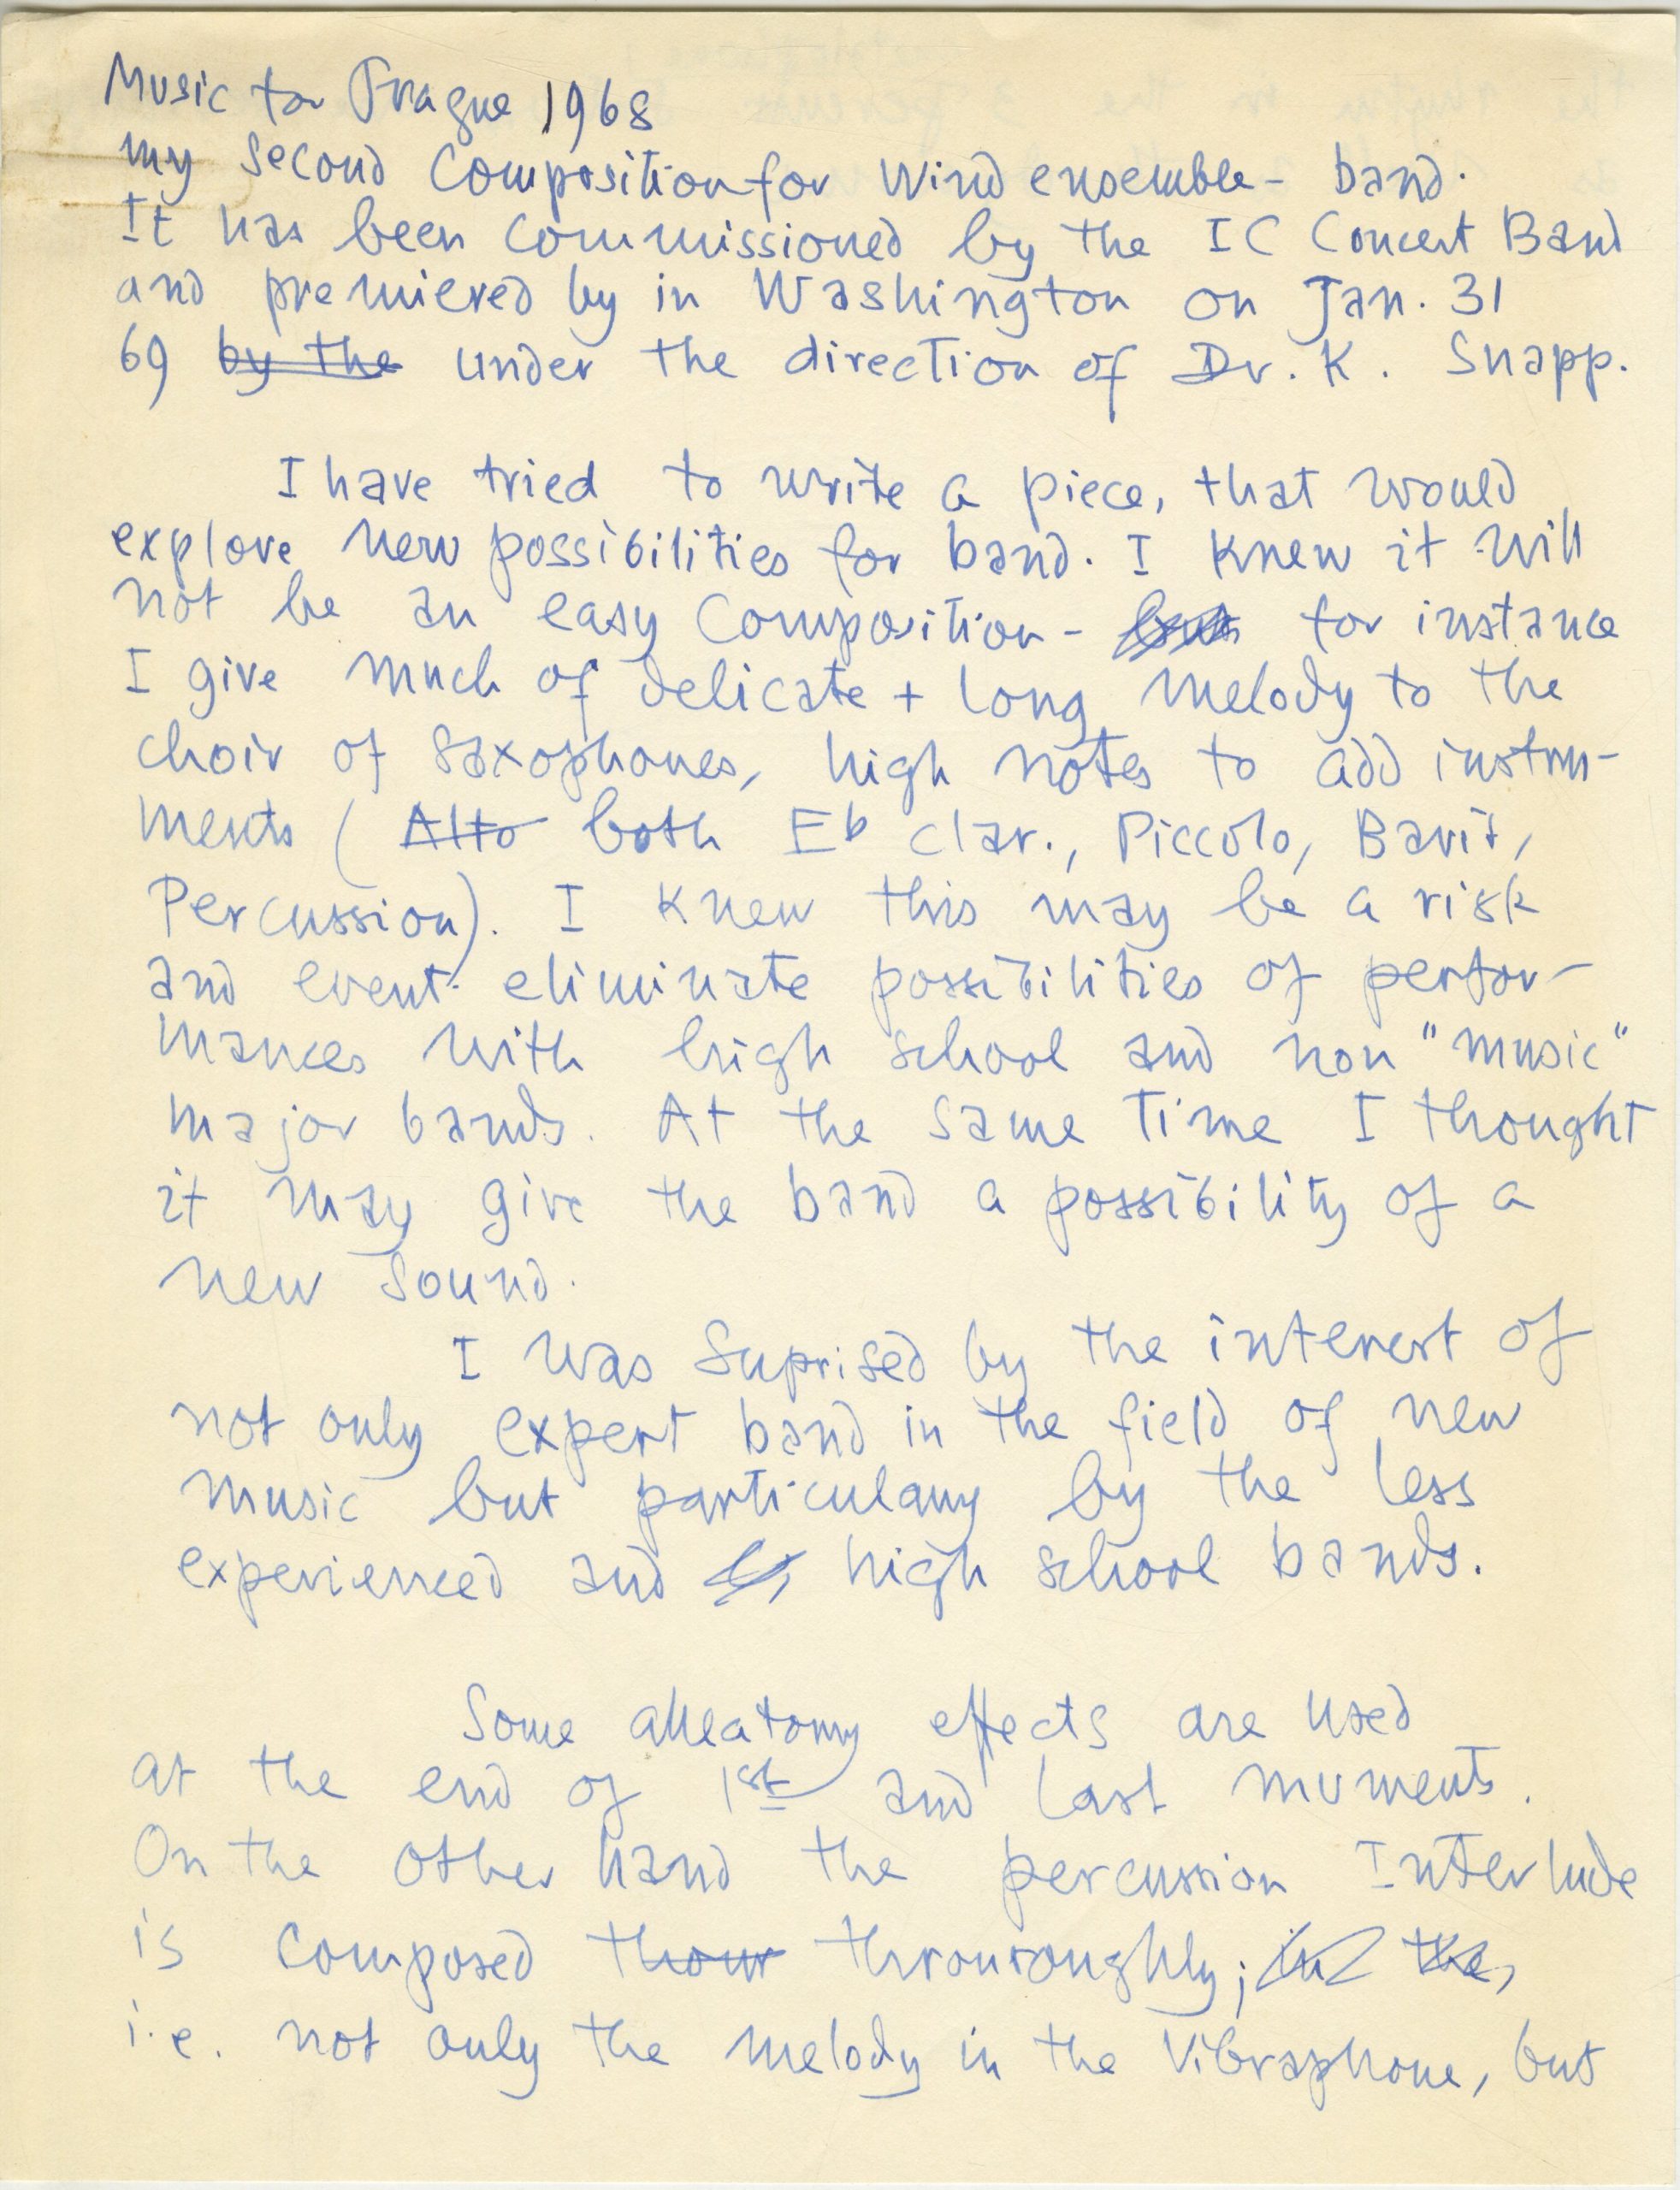 Music for Prague 1968
my second Composition for Wind ensemble - band.
It has been commissioned by the IC Concert Band
and premiered by in Washington on Jan. 31
69 by the under the direction of Dr. K. Snapp.
I have tried to write a piece, that would
explore new possibilities for band. I knew it will
not be an easy Composition - but for instance
I give much of delicate + long melody to the
choir of saxophones, high notes to add instru-
ments (Alto both Eb clar., Piccolo, Barit,
Percussion). I knew this may be a risk
and event. eliminate possibilities of perfor-
mances with high school and non "music"
major bands. At the same time I thought
it may give the band a possibility of a
new sound.
I was suprised by the interest of
not only expert band in the field of new
music but particulary by the less
experienced and high school bands.
Some alleatory effects are used
at the end of 1st and last muments.
On the other hand the percussion Interlude
is composed thour throuroughly; in the,
i.e. not only the melody in the Vibraphone, but